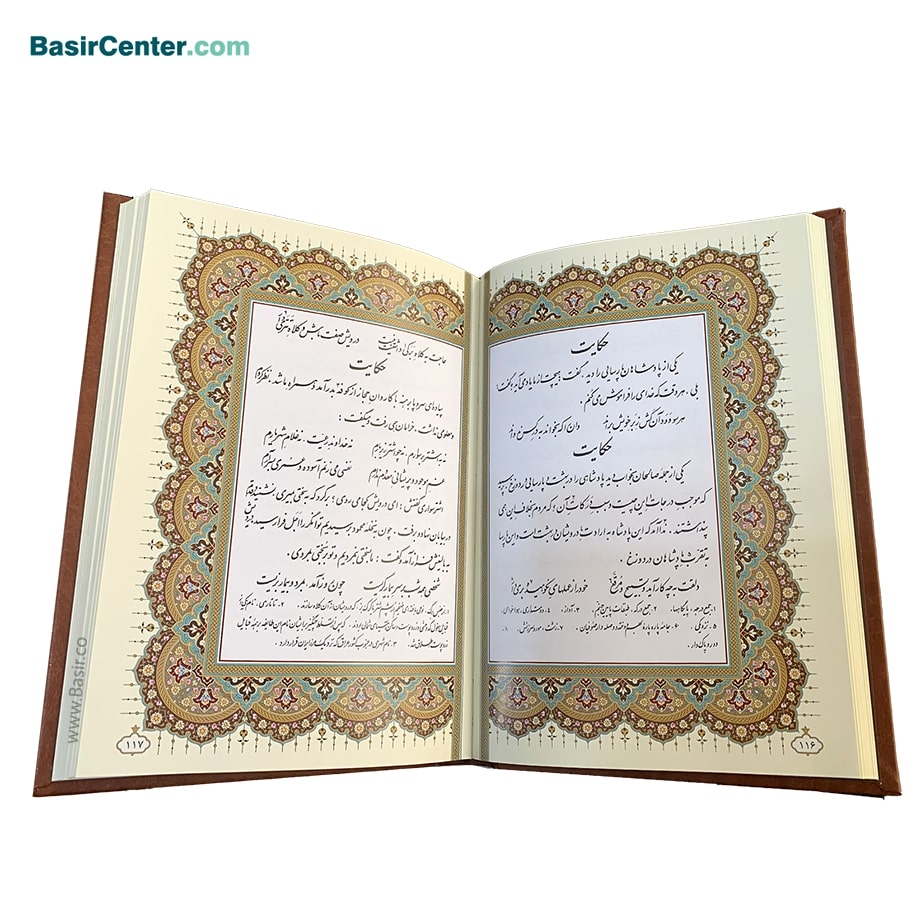 BasirCenter.com
حکایت
یکی از پادشاهان پارسایی را دید، گفت: هیچت از ما یاد می آید؟ گفت:
بلی، هر وقت که خدای را فراموش می کنم.
هر سو دود آن کش ز بر خویش براند وان را که بخواند به در کس ندواند
حکایت
یکی از جمله صالحان بخواب دید پادشاهی را در بهشت و پارسایی را در دوزخ، پرسید
که موجب درجات این چیست و سبب درکات آن؟ که مردم بخلاف این همی
پنداشتند. ندا آمد که این پادشاه به ارادت درویشان در بهشت است و این پارسا
به تقرب پادشاهان در دوزخ.
دلقت به چه کار آید و تسبیح و مرقع خود را ز عملهای نکوهیده بری دار
۱. جمع درجه، پایگاهها. ۲. جمع درک، طبقات پایین جهنم. ۳. آواز. ۴. دوستداری، هواخواهی
۵. نزدیکی. ۶. جامه پاره پاره بهم دوخته وصله دار صوفیان. ۷. زشت، مورد سرزنش. ۸.
دور و پاک دار.
۱۱۶
حاجت به کلاه برکی داشتنت نیست درویش صفت باش و کلاه تتری دار
حکایت
پیاده ای سر و پا برهنه با کاروان حجاز از کوفه بدر آمد و همراه ما شد. نظر کردم
و معلومی نداشت. خرامان همی رفت و میگفت:
نه به اشتر بر سوارم، نه چو اشتر زیر بارم نه خداوند رعیت، نه غلام شهریارم
غم موجود و پریشانی معدوم ندارم نفسی می زنم آسوده و عمری بسر آرم
اشتر سواری گفتش: ای درویش کجا می روی؟ برگرد که به سختی بمیری. نشنید و قدم
در بیابان نهاد و برفت. چون به نخله محمود رسیدیم توانگر را اجل فرا رسید. درویش
به بالینش فراز آمد و گفت: ما بسختی نمردیم و تو بر بختی بمردی.
شخصی همه شب بر سر بیمار گریست چون روز آمد، بمرد و بیمار بزیست
۱۱۷
www.Basir.co